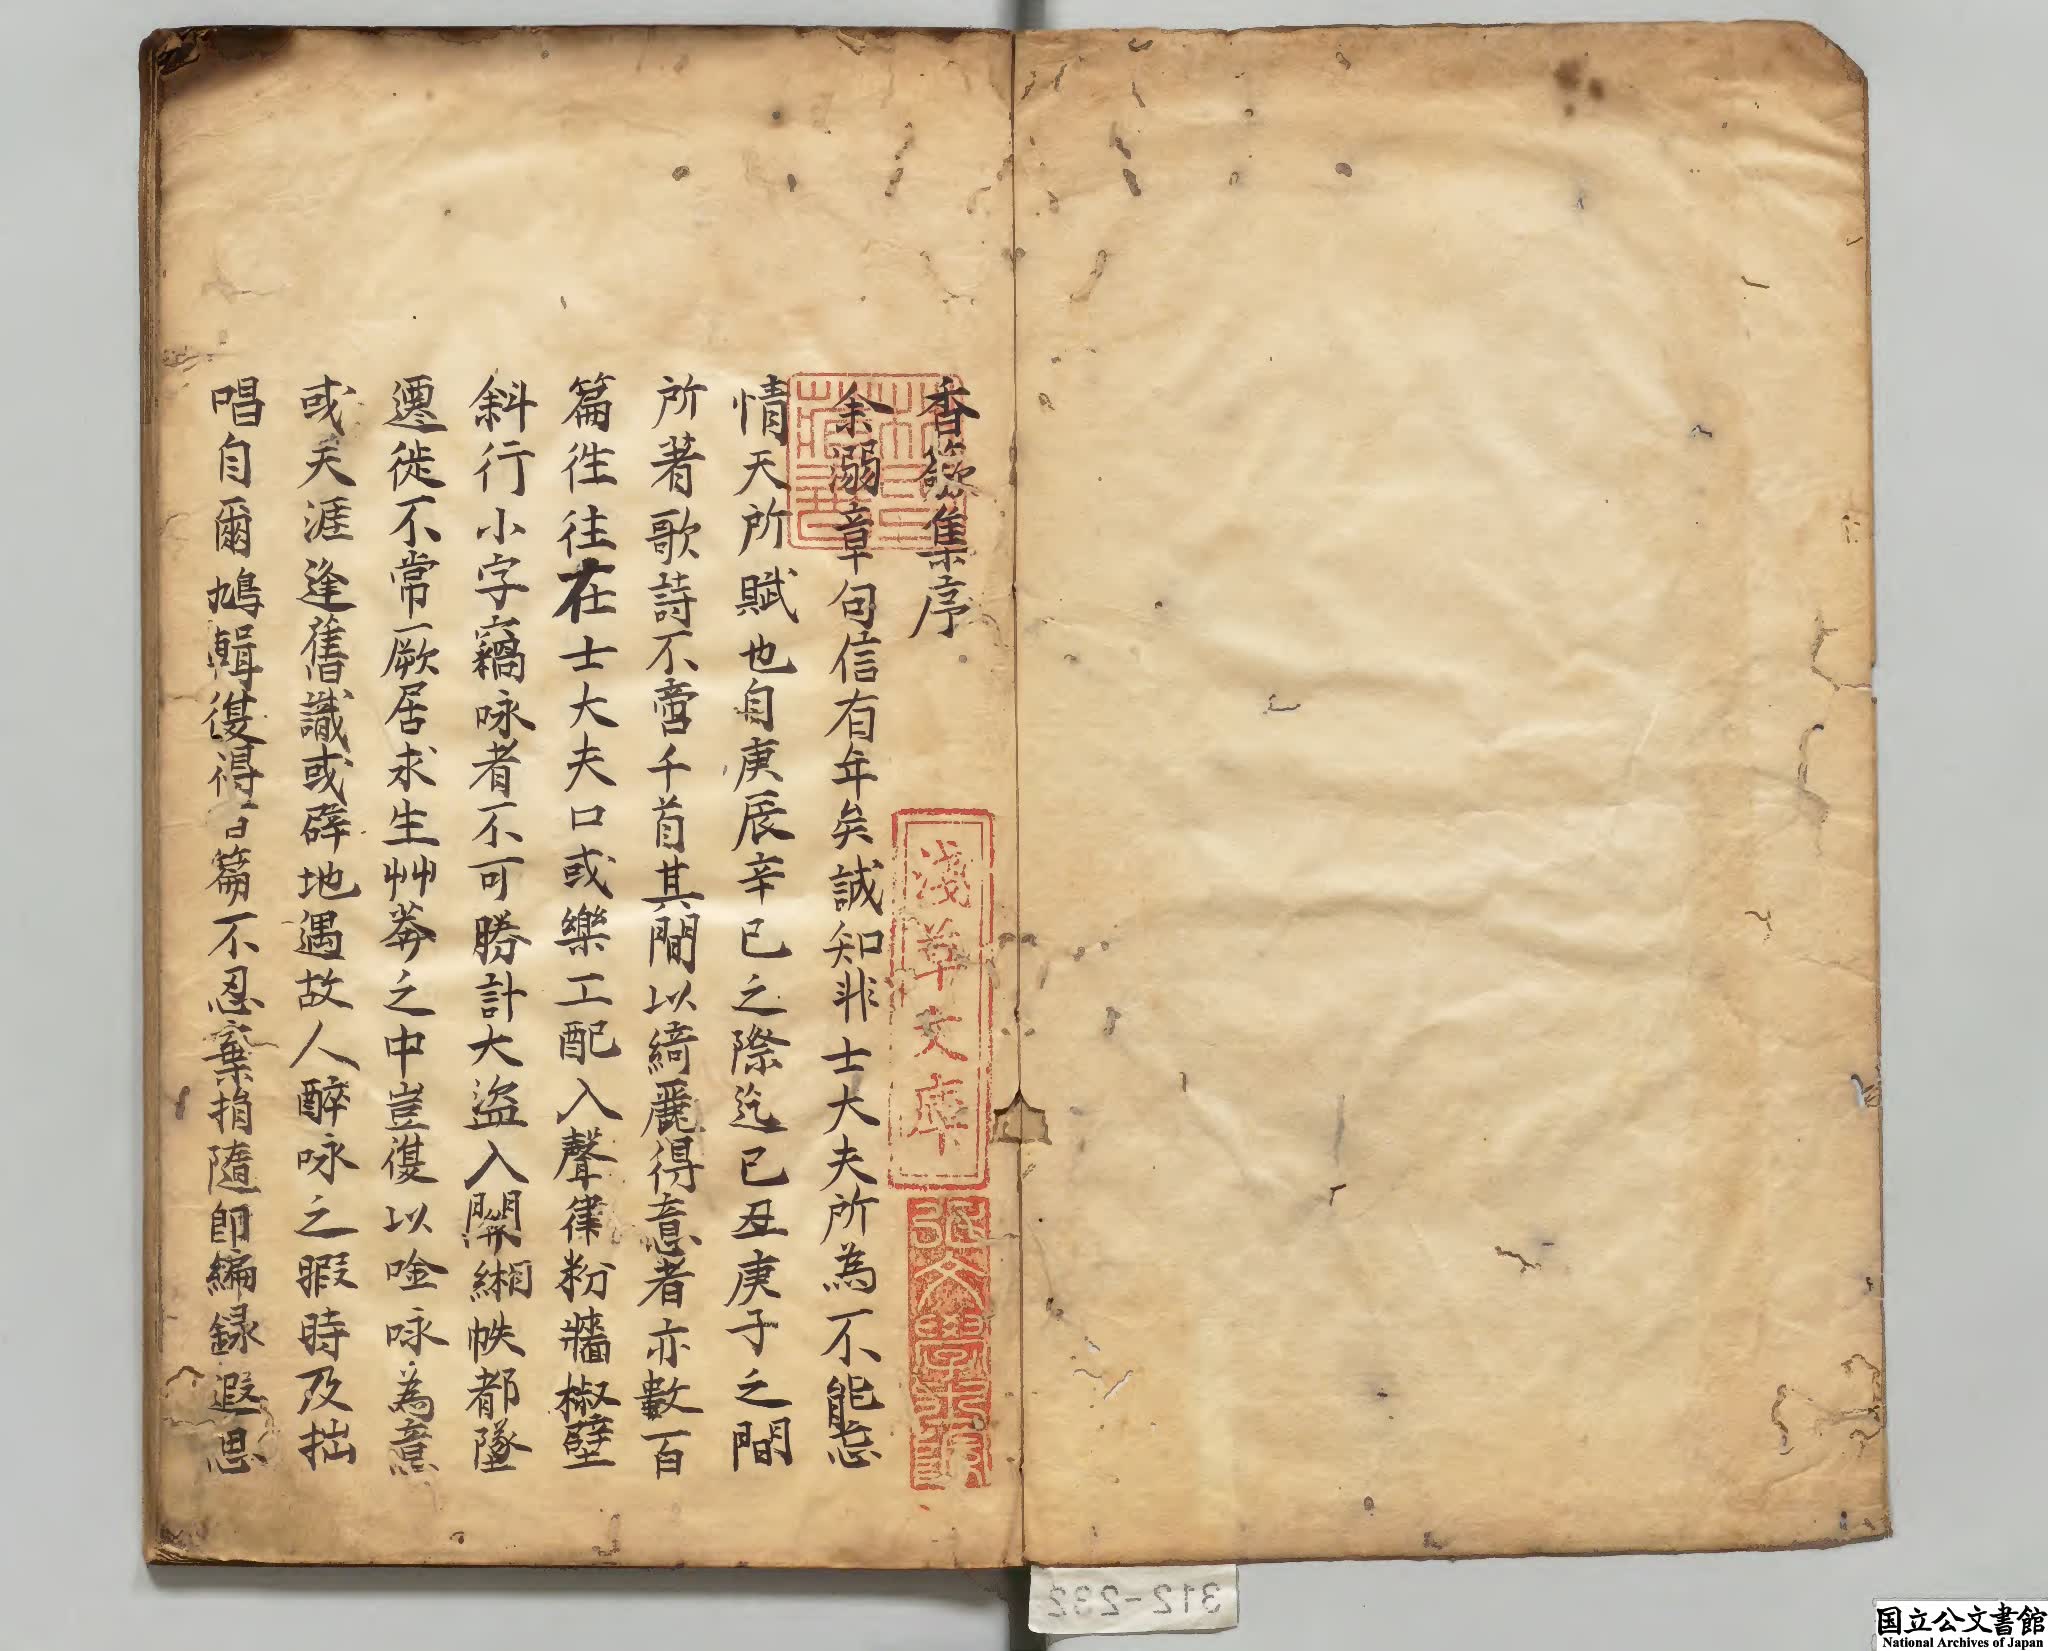 香奩集序
余溺章句信有年矣誠知非士大夫所為不能忘
情天所賦也自庚辰辛巳之際迄己丑庚子之間
所著歌詩不啻千首其間以綺麗得意者亦數百
篇徃徃在士大夫口或樂工配入聲律粉牆椒壁
斜行小字竊咏者不可勝計大盜入關緗帙都墜
遷徙不常厥居求生艸莽之中豈復以唫咏為意
或天涯逢舊識或辟地遇故人醉咏之暇時及拙
唱自爾鳩輯復得百篇不忍棄捐隨即編録遐思
淺草文庫
312-232
国立公文書館
National Archives of Japan